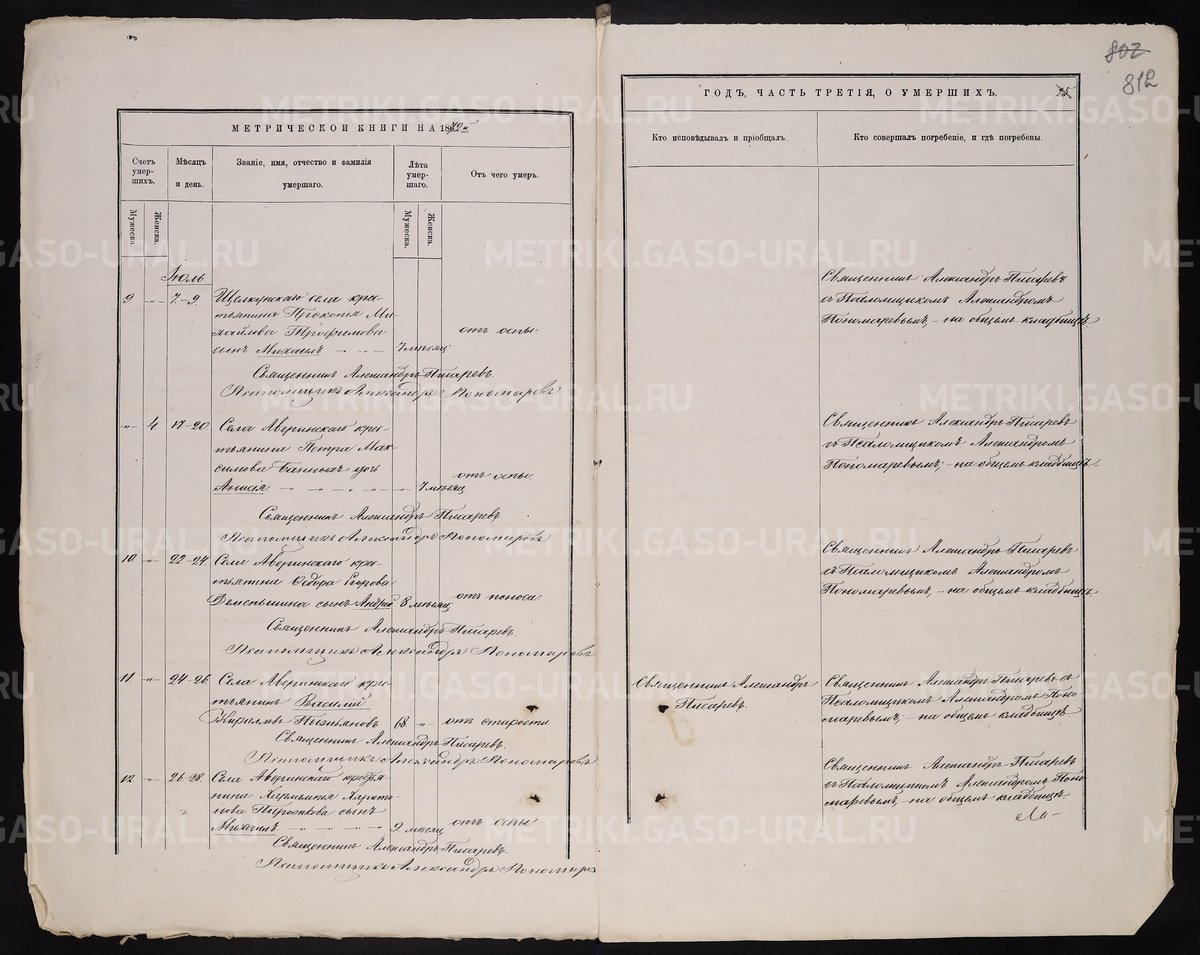 МЕТРИЧЕСКОЙ КНИГИ НА 18
Счетъ умер-шихъ.
Мужеска.
Женска.
Мѣсяцъ и день.
Званіе, имя, отчество и фамилія умершаго.
Лѣта умер-шаго.
Мужеска.
Женска.
Отъ чего умеръ.
Іюль.
9. „ 7-9. Щелкунскаго села кре-
стьянина Прокопія Ми-
хайлова Трофимова
сынъ Михаилъ 7 мѣсяц. отъ оспы.
Священникъ Александръ Писаревъ.
Псаломщикъ Александръ Пономаревъ
„ 4 17-20 Села Аверинскаго кре-
стьянина Петра Мак-
симова дочь
Анисія 7 мѣсяц отъ оспы.
Священникъ Александръ Писаревъ
Псаломщикъ Александръ Пономаревъ
10. „ 22-24. Села Аверинскаго кре-
стьянина Ѳедора Егорова
Деменьшина сынъ Андрей 8 мѣсяц отъ поноса.
Священникъ Александръ Писаревъ.
Псаломщикъ Александръ Пономаревъ
11. „ 24-26. Села Аверинскаго кре-
стьянинъ Василій
Кириловъ 68. „ отъ старости.
Священникъ Александръ Писаревъ.
Псаломщикъ Александръ Пономаревъ
12. „ 26-28. Села Аверинскаго крестья-
нина Харито-
нова сынъ
9 мѣсяц. отъ оспы.
Священникъ Александръ Писаревъ.
Псаломщикъ Александръ Пономарев
802
812
ГОДЪ, ЧАСТЬ ТРЕТІЯ, О УМЕРШИХЪ.
Кто исповѣдывалъ и пріобщалъ.
Кто совершалъ погребеніе, и гдѣ погребены.
Священникъ Александръ Писаревъ
съ Псаломщикомъ Александромъ
Пономаревымъ, – на общемъ кладбищѣ
Священникъ Александръ Писаревъ
съ Псаломщикомъ Александромъ
Пономаревымъ; – на общемъ кладбищѣ.
Священникъ Александръ Писаревъ
съ Псаломщикомъ Александромъ
Пономаревымъ, – на общемъ кладбищѣ
Священникъ Александръ
Писаревъ.
Священникъ Александръ Писаревъ съ
Псаломщикомъ Александромъ Поно-
маревымъ, – на общемъ кладбищѣ
Священникъ Александръ Писаревъ
съ Псаломщикомъ Александромъ Поно-
маревымъ, – на общемъ кладбищѣ.
METRIKI.GASO-URAL.RU